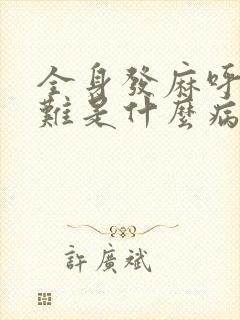 全身發麻呼
難是什麼病
許廣斌